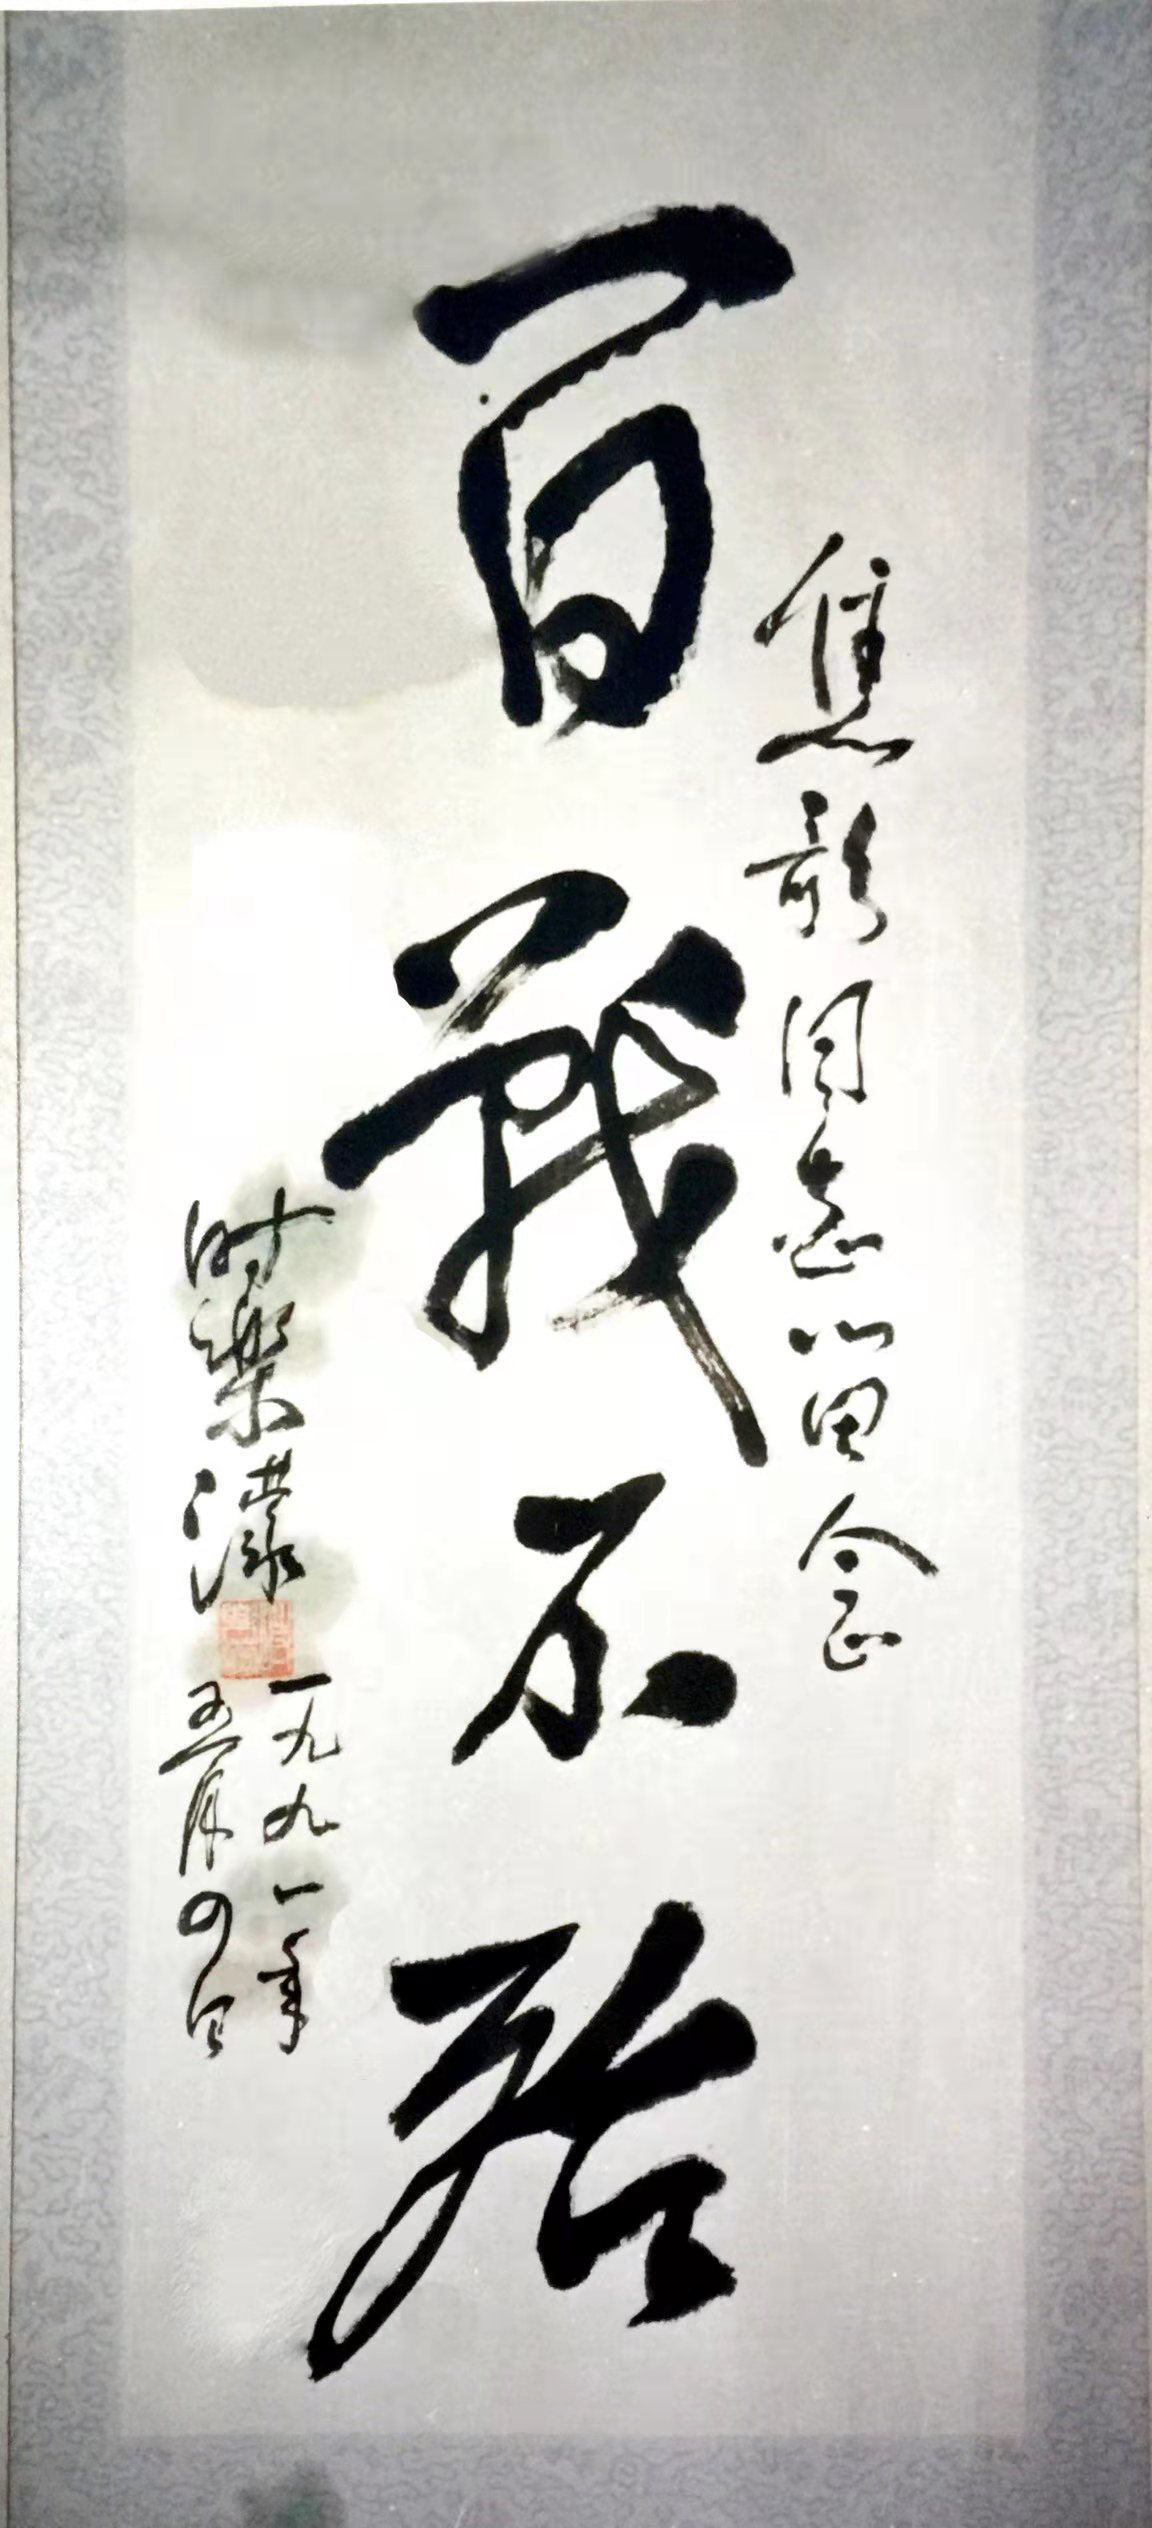 焦同志留念
百戰不殆
时樂濛
一九九一年
五月四日